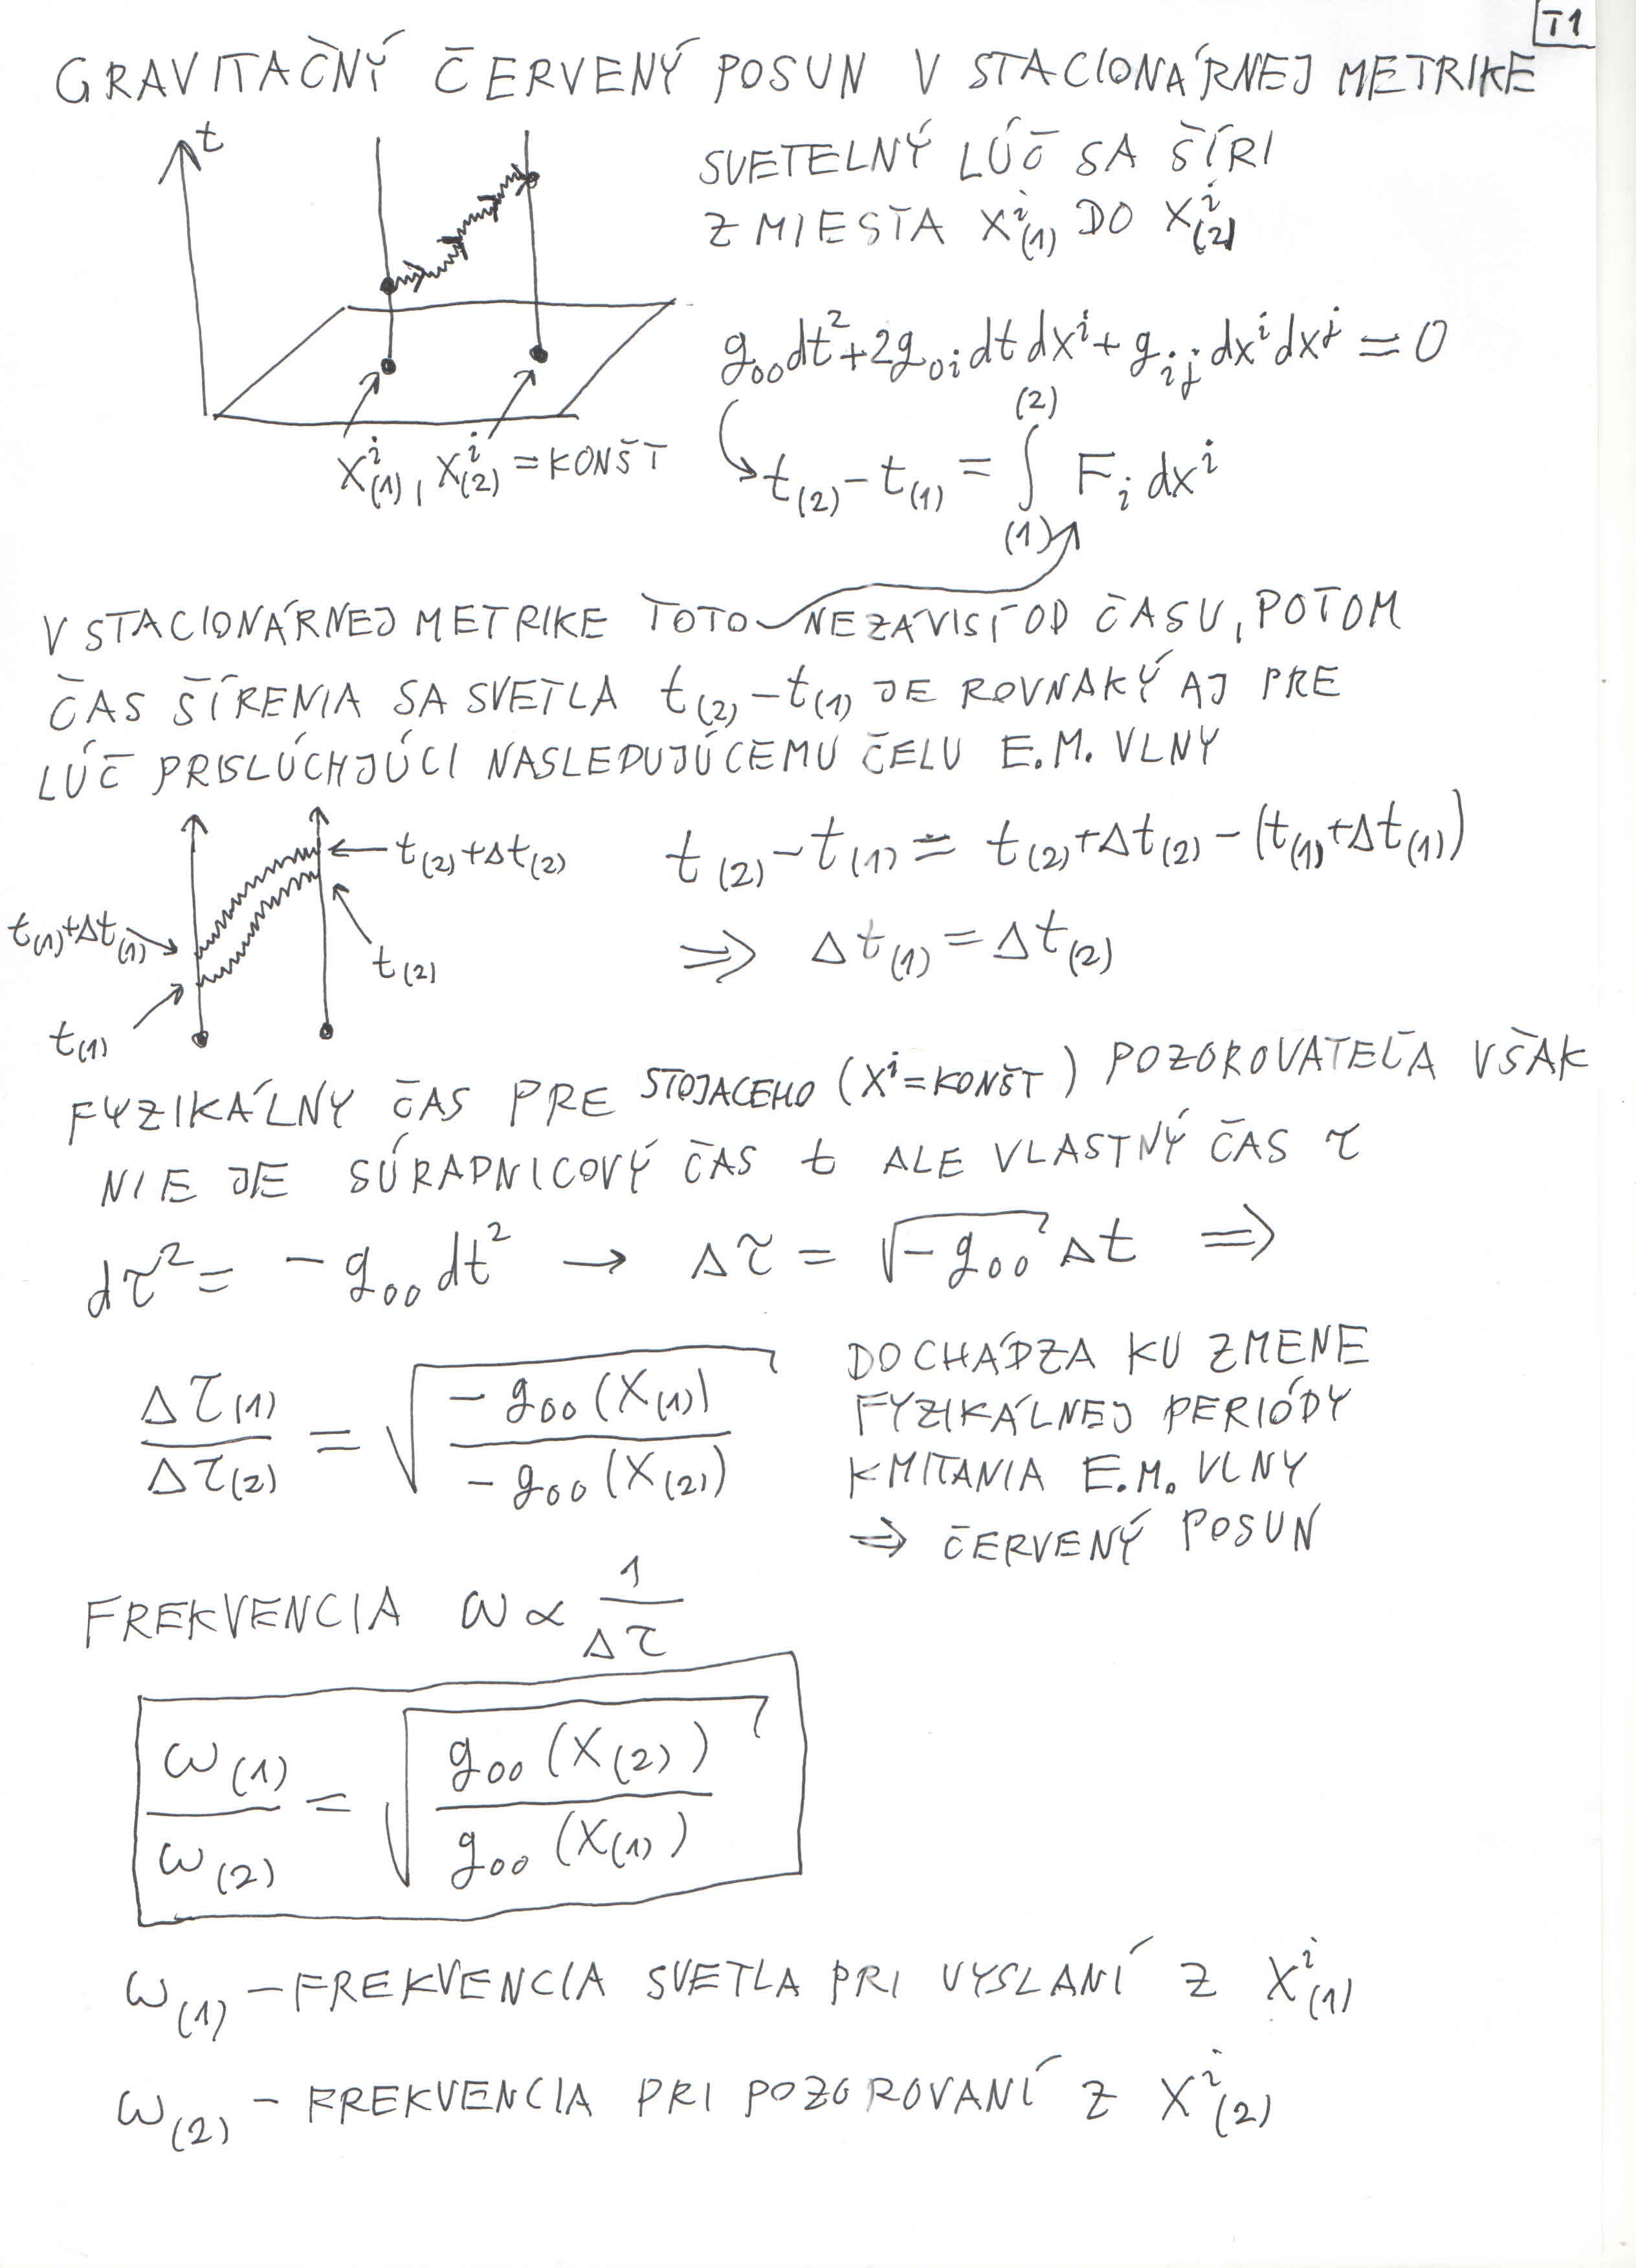 T1
GRAVITAČNÝ ČERVENÝ POSUN V STACIONÁRNEJ METRIKE
t
SVETELNÝ LÚČ SA ŠÍRI
Z MIESTA X^i_(1) DO X^i_(2)
g_00 dt^2 + 2g_0i dt dx^i + g_ij dx^i dx^j = 0
X^i_(1), X^i_(2) = KONŠT
t_(2) - t_(1) = ∫_(1)^(2) F_i dx^i
V STACIONÁRNEJ METRIKE TOTO NEZÁVISÍ OD ČASU, POTOM
ČAS ŠÍRENIA SA SVETLA t_(2) - t_(1) JE ROVNAKÝ AJ PRE
LÚČ PRISLÚCHJÚCI NASLEDUJÚCEMU ČELU E.M. VLNY
t_(2) + Δt_(2)
t_(1) + Δt_(1)
t_(2)
t_(1)
t_(2) - t_(1) = t_(2) + Δt_(2) - (t_(1) + Δt_(1))
⇒ Δt_(1) = Δt_(2)
FYZIKÁLNY ČAS PRE STOJACEHO (X^i = KONŠT) POZOROVATEĽA VŠAK
NIE JE SÚRADNICOVÝ ČAS t ALE VLASTNÝ ČAS τ
dτ^2 = - g_00 dt^2 → Δτ = √(-g_00) Δt ⇒
Δτ_(1) / Δτ_(2) = √(-g_00 (X_(1)) / -g_00 (X_(2)))
DOCHÁDZA KU ZMENE
FYZIKÁLNEJ PERIÓDY
KMITANIA E.M. VLNY
⇒ ČERVENÝ POSUN
FREKVENCIA ω ∝ 1 / Δτ
ω_(1) / ω_(2) = √(g_00 (X_(2)) / g_00 (X_(1)))
ω_(1) - FREKVENCIA SVETLA PRI VYSLANÍ Z X^i_(1)
ω_(2) - FREKVENCIA PRI POZOROVANÍ Z X^i_(2)